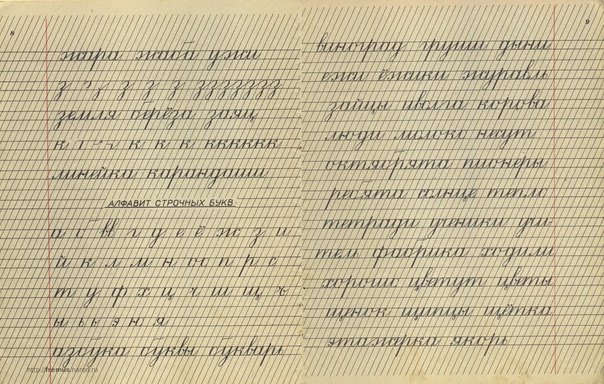 8
жара жаба ужи
з з з з з з з з з з з з з
земля берёза заяц
к к к к к к к к к к
линейка карандаши
АЛФАВИТ СТРОЧНЫХ БУКВ
а б в г д е ё ж з и
й к л м н о п р с
т у ф х ц ч ш щ ъ
ы ь э ю я
азбука буквы букварь
http://fremus.narod.ru
9
виноград груши дыни
ежи ёжики журавль
зайцы иволга корова
люди молоко несут
октябрята пионеры
ребята солнце тепло
тетради ученики учи-
тель фабрика ходили
хорошо цветут цветы
щенок щипцы щётка
этажерка якорь